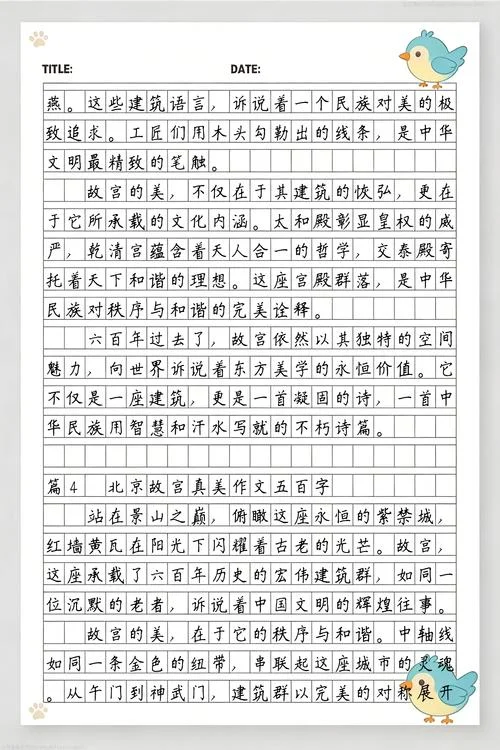 TITLE: DATE:
燕。这些建筑语言，诉说着一个民族对美的极
致追求。工匠们用木头勾勒出的线条，是中华
文明最精致的笔触。
故宫的美，不仅在于其建筑的恢弘，更在
于它所承载的文化内涵。太和殿彰显皇权的威
严，乾清宫蕴含着天人合一的哲学，交泰殿寄
托着天下和谐的理想。这座宫殿群落，是中华
民族对秩序与和谐的完美诠释。
六百年过去了，故宫依然以其独特的空间
魅力，向世界诉说着东方美学的永恒价值。它
不仅是一座建筑，更是一首凝固的诗，一首中
华民族用智慧和汗水写就的不朽诗篇。
篇4 北京故宫真美作文五百字
站在景山之巅，俯瞰这座永恒的紫禁城，
红墙黄瓦在阳光下闪耀着古老的光芒。故宫，
这座承载了六百年历史的宏伟建筑群，如同一
位沉默的老者，诉说着中国文明的辉煌往事。
故宫的美，在于它的秩序与和谐。中轴线
如同一条金色的纽带，串联起这座城市的灵魂
。从午门到神武门，建筑群以完美的对称展开